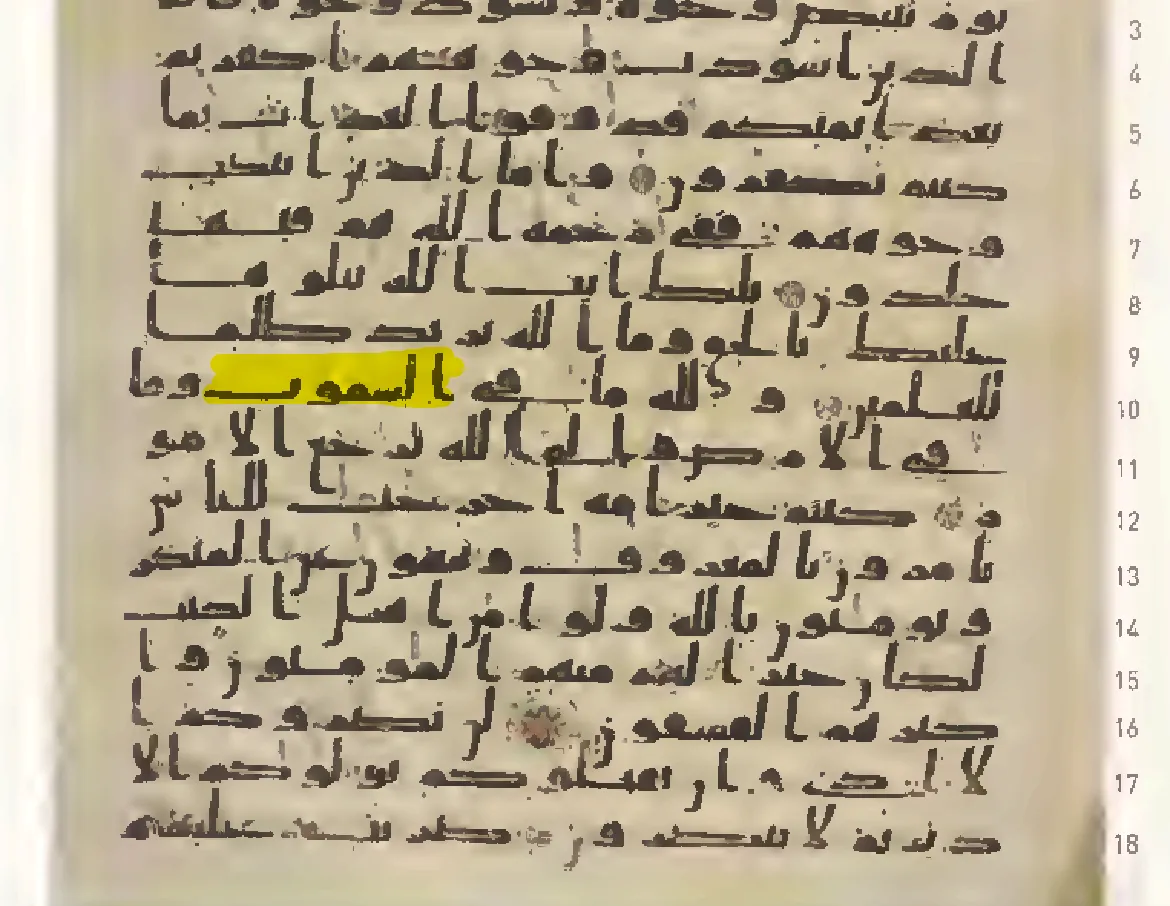 يوم تبيض وجوه وتسود وجوه فام 3
ا الذين اسودت وجوههم اكفرتم 4
بعد ايمنكم فذوقوا العذاب بما 5
كنتم تكفرون واما الذين ابيضت 6
وجوههم ففي رحمه الله هم فيها 7
خلدون تلك ايت الله نتلوها 8
عليك بالحق وما الله يريد ظلما 9
للعلمين ولله ما في السموت وما 10
في الارض والى الله ترجع الامو 11
ر كنتم خير امه اخرجت للناس 12
تامرون بالمعروف وتنهون عن المنكر 13
وتومنون بالله ولو امن اهل الكتب 14
لكان خيرا لهم منهم المومنون وا 15
كثرهم الفسقون لن يضروكم ا 16
لا اذى وان يقتلوكم يولوكم الا 17
دبر ثم لا ينصرون ضربت عليهم 18